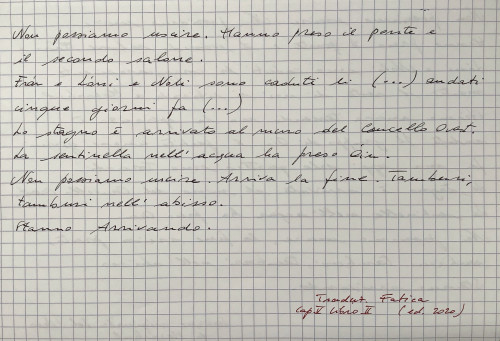 Non possiamo uscire. Hanno preso il ponte e
il secondo salone.
Fràr e Lóni e Nali sono caduti lì (...) andati
cinque giorni fa (...)
Lo stagno è arrivato al muro del Cancello Ovest.
La sentinella nell'acqua ha preso Óin.
Non possiamo uscire. Arriva la fine. Tamburi,
tamburi nell'abisso.
Stanno Arrivando.
Traduz. Fatica
Cap V Libro II (ed. 2020)